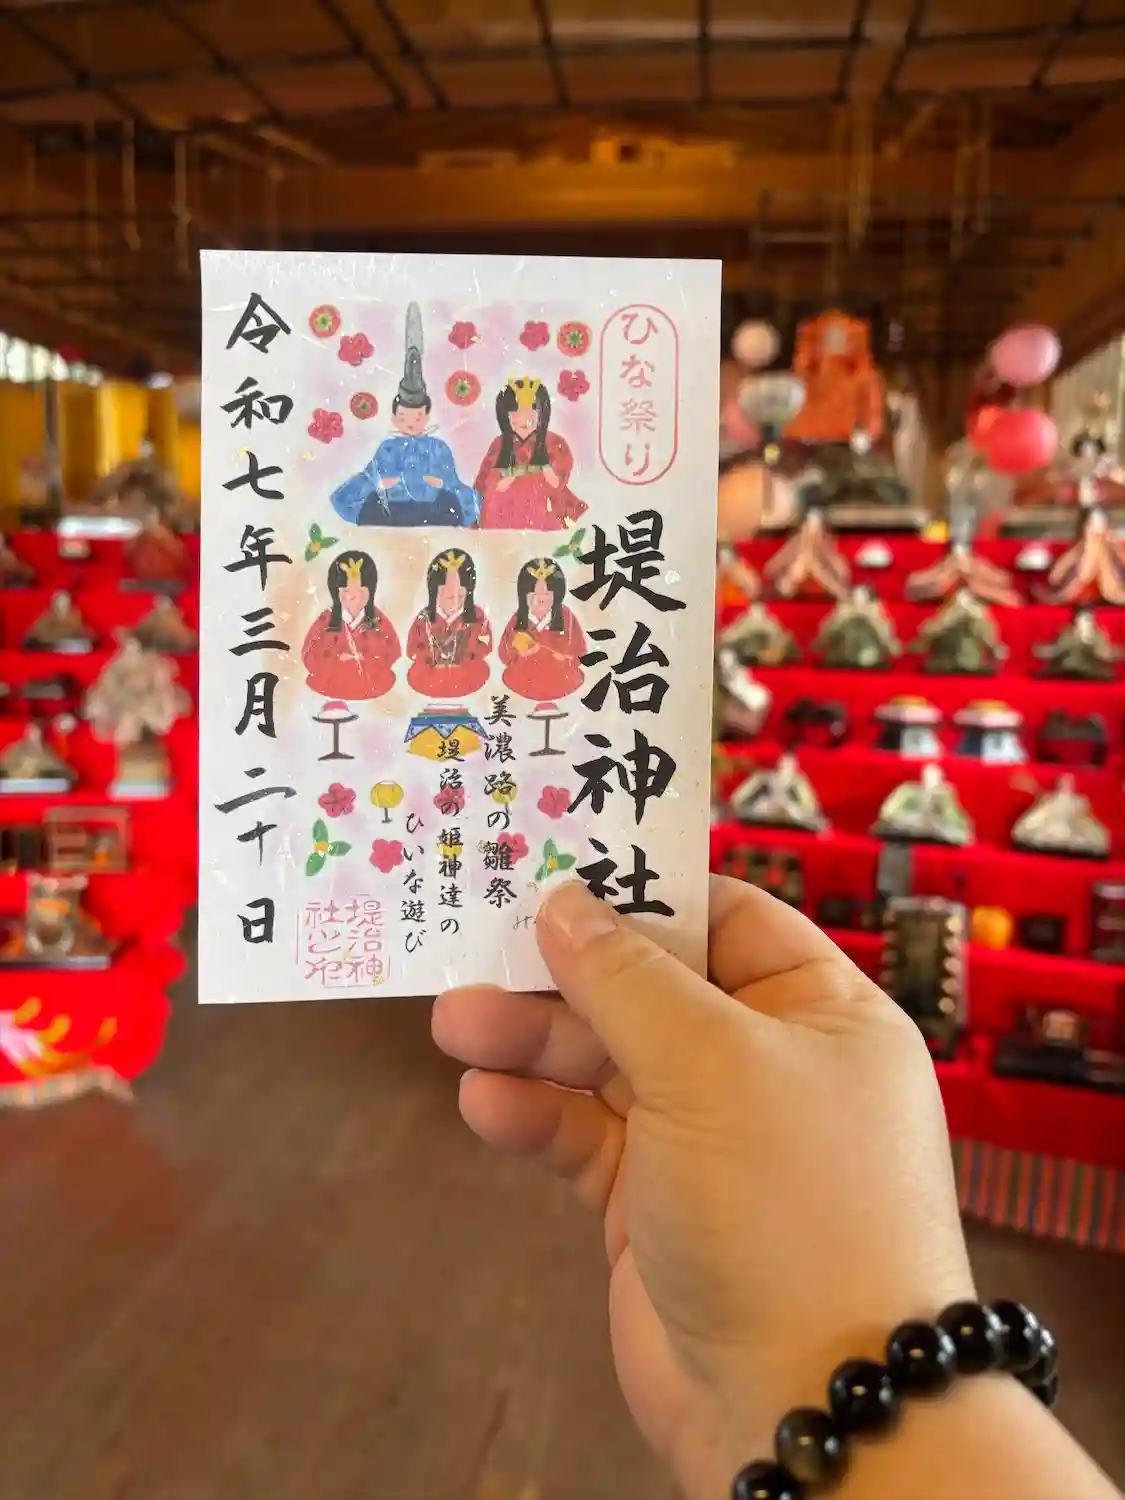 ひな祭り
堤治神社
美濃路の雛祭
堤治の姫神達の
ひいな遊び
令和七年三月二十日
堤治神
社